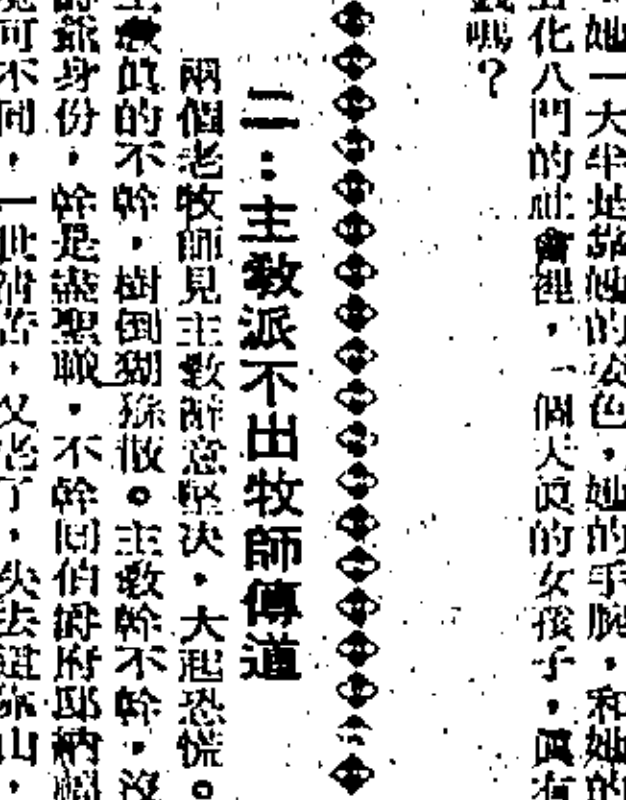 她一大半是靠她的姿色，她的手腕，和她的
化八門的社會裡，一個天眞的女孩子，眞有
嗎？
二：主教派不出牧師傳道
兩個老牧師見主教辭意堅決，大起恐慌。
眞的不幹，樹倒猢猻散。主教幹不幹，沒
爺身份，幹是盡聖職，不幹回伯爵府邸納
可不同，一世清苦，又老了，失去這靠山，